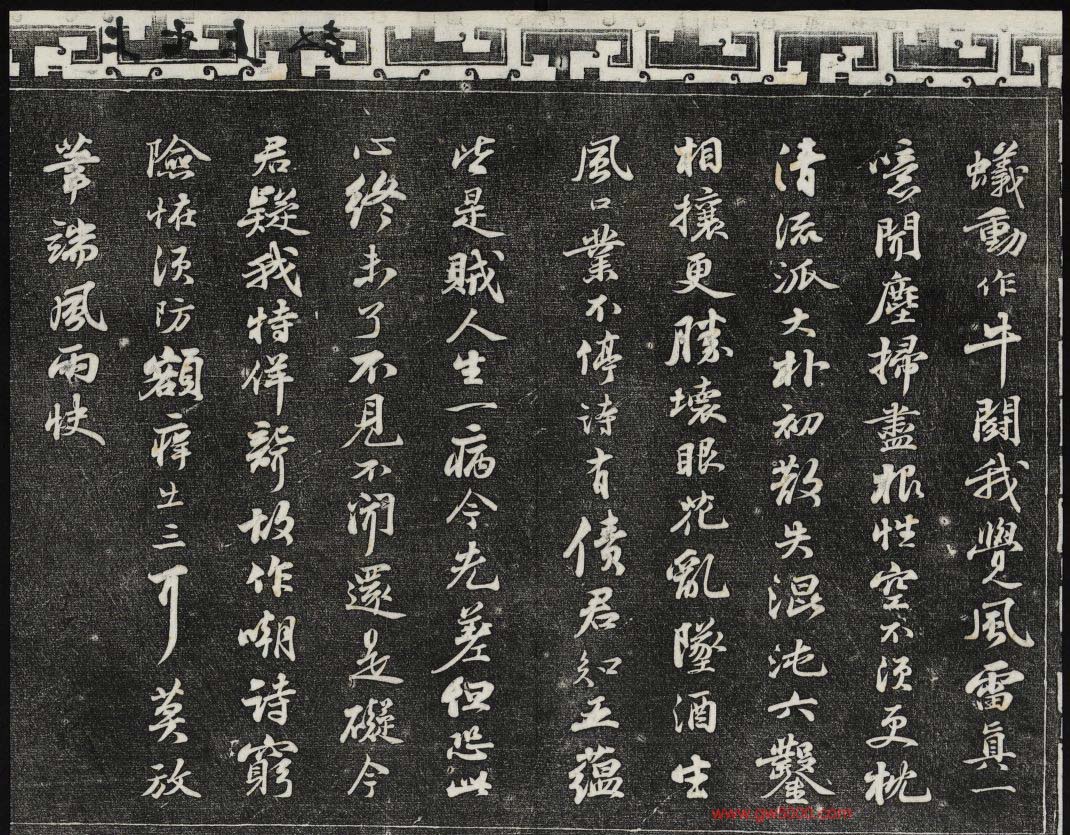 蟻動作牛鬪我覺風雷真一
噫聞塵掃盡根性空不須更枕
清流派大朴初散失混沌六鑿
相攘更勝壞眼花亂墜酒生
風口業不停詩有債君知五蘊
皆是賊人生一病今先差但恐此
心終未了不見不聞還是礙今
君疑我特佯聾故作嘲詩窮
險怪須防額癢出三耳莫放
筆端風雨快